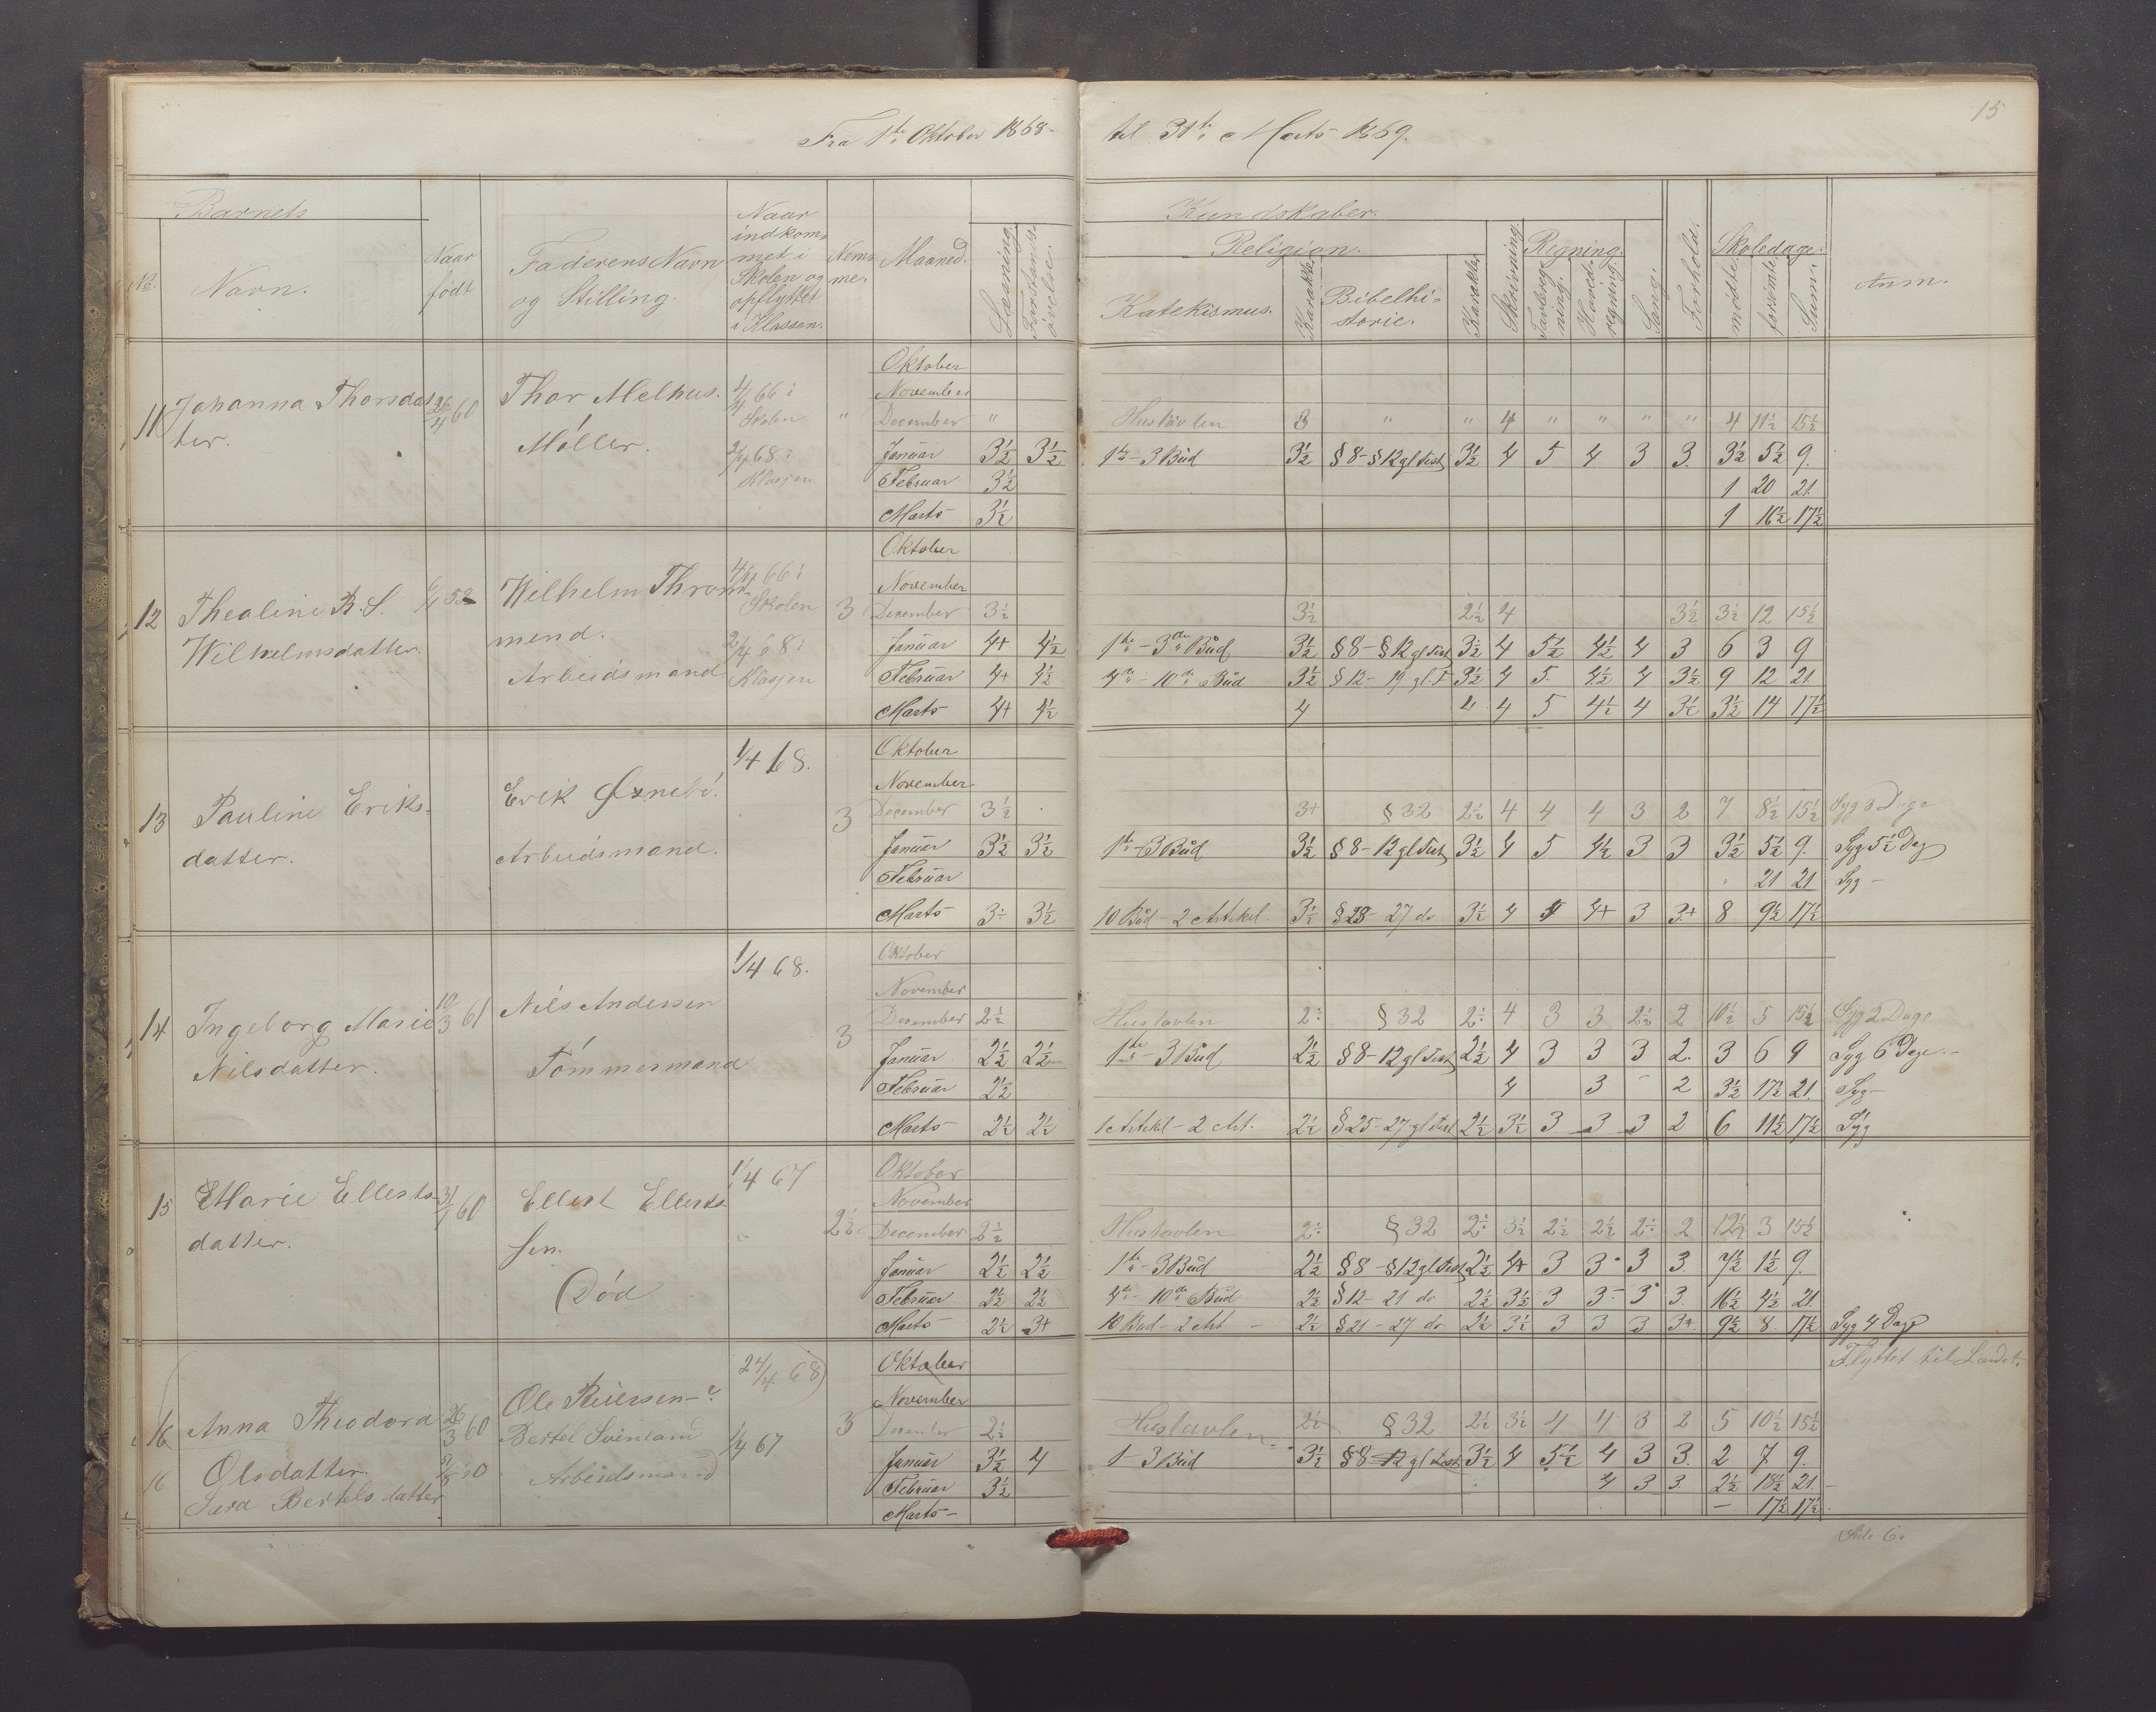 15
Fra 1ste Oktober 1868 - til 31te Marts 1869.
Barnets
No. Navn. Naar født Faderens Navn og Stilling. Naar indkommet i Skolen og opflyttet i Klassen. Nemme. Maaned. Læsning.
Kundskaber.
Religion. Skrivning Regning. Sang. Forhold. Skoledage. Anm.
Katekismus. Karakter Bibelhistorie. Karakter Tavleregning. Hovedregning mødte forsømte Sum.
Oktober
November
11 Johanna Thorsdatter. 26/4 60 Thor Melhus. Møller. 4/4 66 i Skolen 2/4 68 i Klassen "
December " Hustavlen 3 " " 4 " " " " 4 11½ 15½
Januar 3½ 3½ 1ste - 3 Bud 3½ § 8 - § 12 gl Test 3½ 4 5 4 3 3. 3½ 5½ 9.
Februar 3½ 1 20 21.
Marts 3½ 1 16½ 17½
Oktober
November
12 Thealine B. S. Wilhelmsdatter. Wilhelm Thronmend. Arbeidsmand 4/4 66 i Skolen 2/4 68 i Klassen 3
December 3½ 3½ 2½ 4 3½ 3½ 12 15½
Januar 4+ 4½ 1ste - 3die Bud 3½ § 8 - § 12 gl Test 3½ 4 5½ 4½ 4 3 6 3 9
Februar 4+ 4½ 4de - 10de Bud 3½ § 12 - 19 gl. T 3½ 4 5. 4½ 4 3½ 9 12 21
Marts 4+ 4½ 4 4 4 5 4½ 4 3½ 3½ 14 17½
Oktober
November
13 Pauline Eriksdatter. Erik Øxnebø. Arbeidsmand. 1/4 68. 3
December 3½ 3+ § 32 2½ 4 4 4 3 2 7 8½ 15½ Syg 8 Dage
Januar 3½ 3½ 1ste - 3 Bud 3½ § 8 - 12 gl Test 3½ 4 5 4½ 3 3 3½ 5½ 9. Syg 5½ Dag
Februar 21 21 Syg -
Marts 3÷ 3½ 10 Bud - 2 Artikel. 3½ § 23 - 27 do 3½ 4 4 4+ 3 3+ 8 9½ 17½
Oktober
November
14 Ingeborg Marie Nilsdatter. 10/3 61 Nils Andersen Tømmermand 1/4 68. 3
December 2½ Hustavlen 2÷ § 32 2÷ 4 3 3 2½ 2 10½ 5 15½ Syg 2 Dage
Januar 2½ 2½ 1ste - 3 Bud 2½ § 8 - 12 gl Test 2½ 4 3 3 3 2. 3 6 9 Syg 6 Dage. -
Februar 2½ 4 3 - 2 3½ 17½ 21. Syg -
Marts 2½ 2½ 1 Artikl - 2 Art. 2½ § 25 - 27 gl Test 2½ 3½ 3 3 3 2 6 11½ 17½ Syg
Oktober
November
15 Marie Ellertsdatter. 31/1 60 Ellert Ellertssen. Død 1/4 67 2½
December 2½ Hustavlen 2÷ § 32 2÷ 3½ 2½ 2½ 2÷ 2 12½ 3 15½
Januar 2½ 2½ 1ste - 3 Bud 2½ § 8 - § 12 gl Test 2½ 4+ 3 3 3 3. 7½ 1½ 9.
Februar 2½ 2½ 4de - 10de Bud 2½ § 12 - 21 do 2½ 3½ 3 3 - 3 3. 16½ 4½ 21.
Marts 2½ 3+ 10 Bud - 2 Art - 2½ § 21 - 27 do 2½ 3½ 3 3 3 3+ 9½ 8. 17½ Syg 4 Dage
Oktober Flyttet til Landet.
November
16 Anna Theodora Olsdatter. 26/3 60 Ole Reiersen - ? 24/4 68 3
December 2½ Hustavlen. 2½ § 32 2½ 3½ 4 4 3 2 5 10½ 15½
16 Bertelsdatter Bertel Svinland Arbeidsmand 1/4 67
Januar 3½ 4 1 - 3 Bud 3½ § 8 - 12 gl Test 3½ 4 5½ 4 3 3. 2 7 9.
Februar 3½ 4 3 3. 2½ 18½ 21. -
Marts - - 17½ 17½.
Side 6.